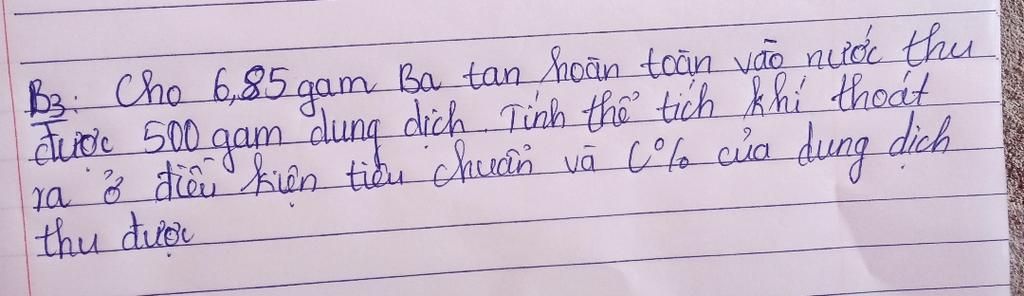 B3: Cho 6,85 gam Ba tan hoàn toàn vào nước thu
được 500 gam dung dịch. Tính thể tích khí thoát
ra ở điều kiện tiêu chuẩn và C% của dung dịch
thu được